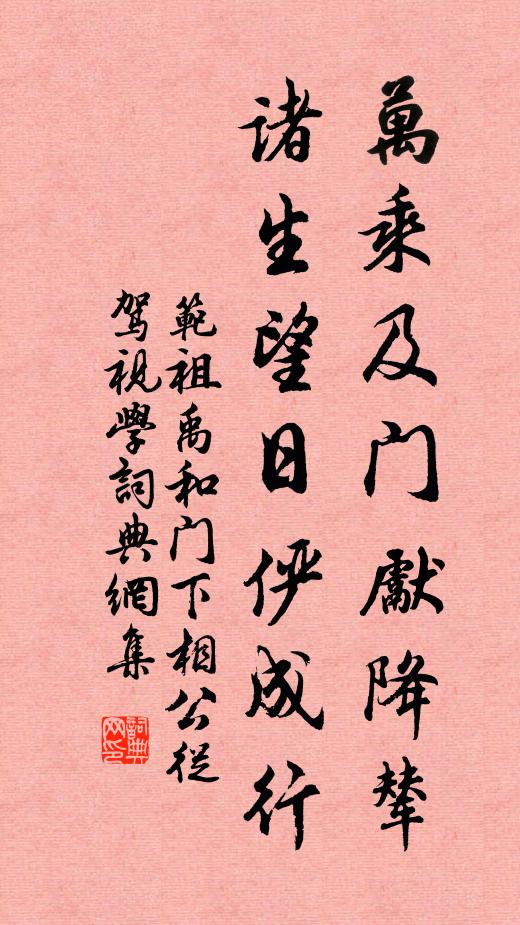 萬乘及门獻降輦
诸生望日俨成行
範祖禹和门下相公從
駕視學詞典網集
詞典网印